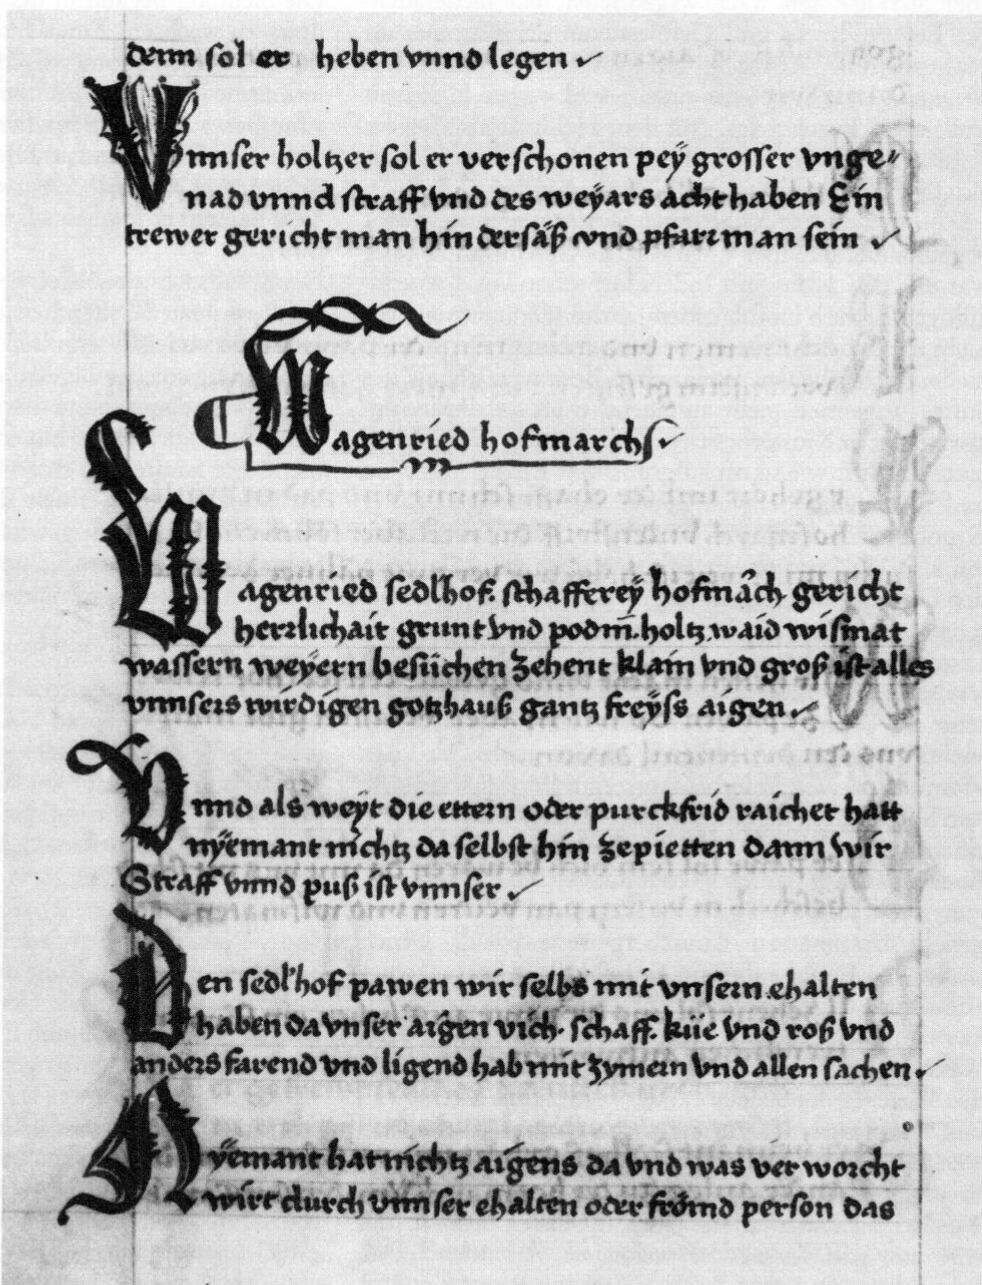 denn sol er heben vnnd legen
Vnnser holtzer sol er verschonen peÿ grosser vnge〃
nad vnnd straff vnd des weÿars acht haben Ein
trewer gericht man hindersäß vnd pfarrman sein
Wagenried hofmarchs
Wagenried sedlhof. schaffereÿ hofmåch gericht
herrlichait grunt vnd podm̄. holtz waid wismat
wassern weÿern besüchen zehent klain vnd groß ist alles
vnnsers wirdigen gotzhauß gantz freÿss aigen
Vnnd als weÿt die ettern oder purckfrid raichet hatt
nÿemant nichtz daselbst hin zepietten dann wir
Straff vnnd puß ist vnnser
Den sedlhof pawen wir selbs mit vnsern ehalten
haben da vnser aigen vich. schaff. küe vnd roß vnd
anders farend vnd ligend hab mit zymern vnd allen sachen
Nÿemant hat nichtz aigens da vnd was verworcht
wirt durch vnnser ehalten oder frömd person das